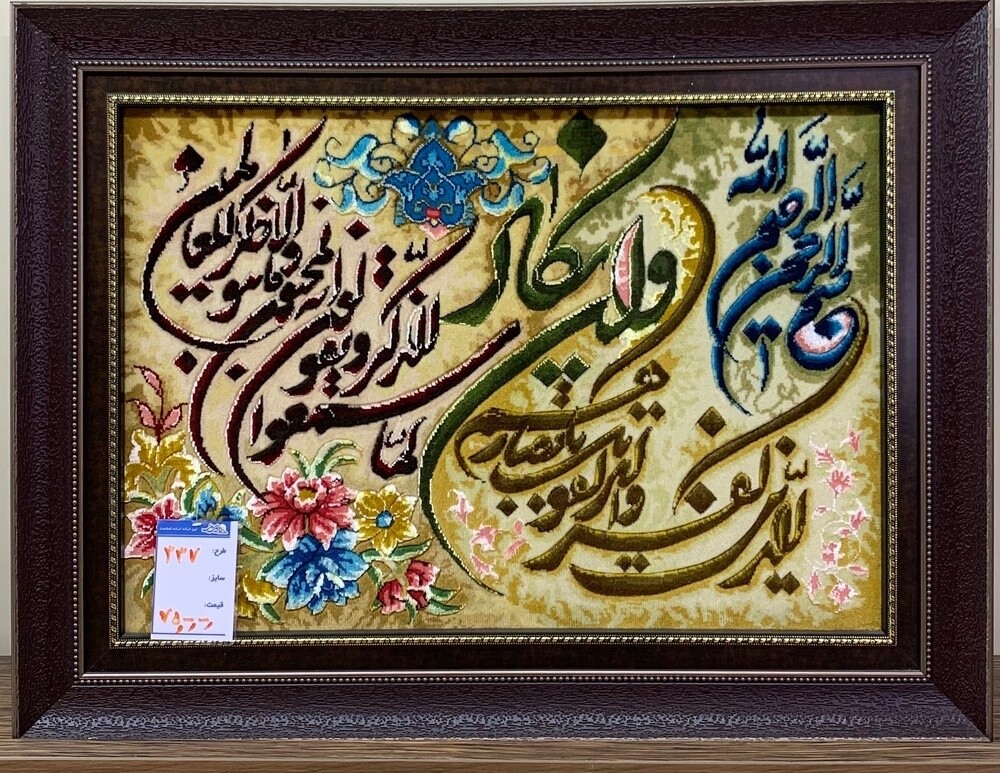 بسم الله الرحمن الرحیم
وان یکاد
الذین کفروا
لیزلقونک بابصارهم
لما سمعوا
الذکر و یقولون
انه لمجنون
و ما هو
الا ذکر للعالمین
طرح: ۲۳۷
سایز:
قیمت: